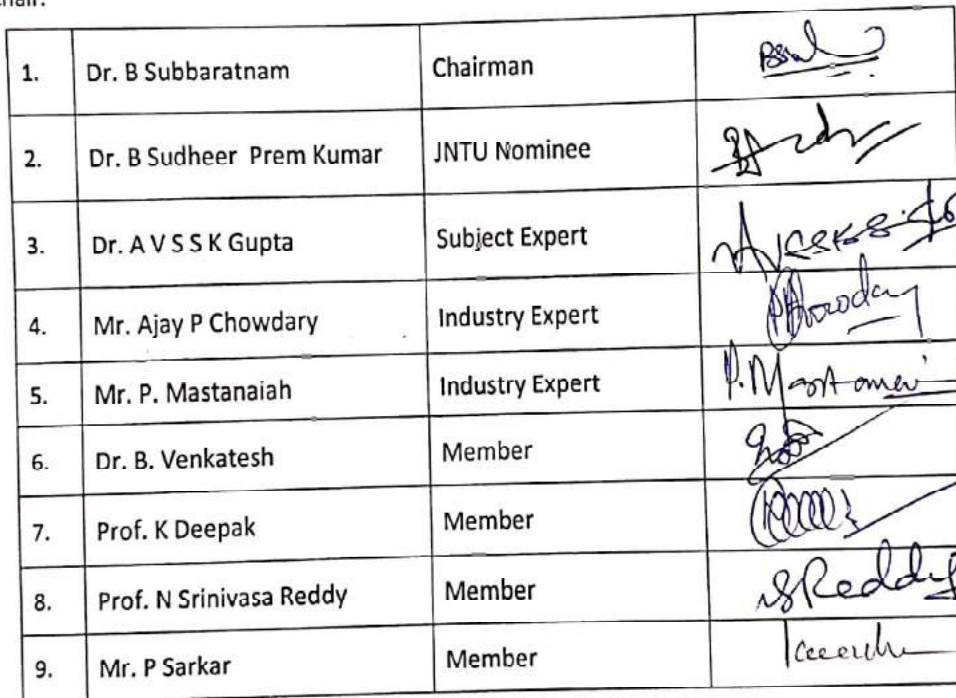 1. Dr. B Subbaratnam Chairman
2. Dr. B Sudheer Prem Kumar JNTU Nominee
3. Dr. A V S S K Gupta Subject Expert
4. Mr. Ajay P Chowdary Industry Expert
5. Mr. P. Mastanaiah Industry Expert P.
6. Dr. B. Venkatesh Member
7. Prof. K Deepak Member
8. Prof. N Srinivasa Reddy Member SReddy
9. Mr. P Sarkar Member